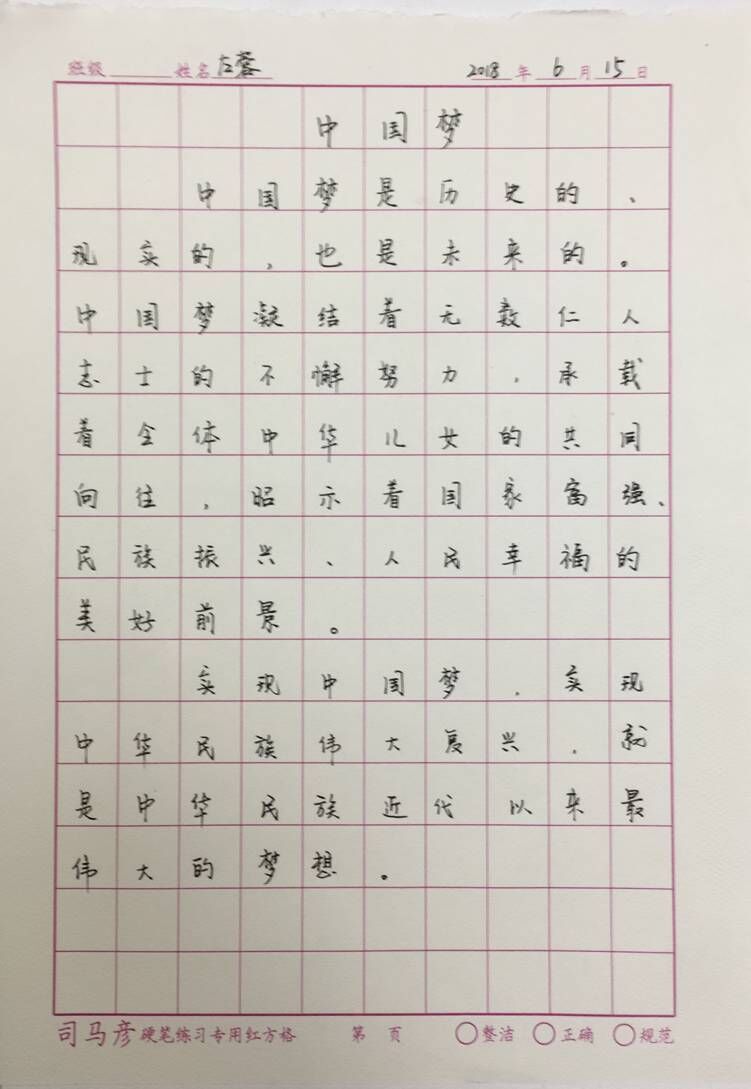 班级 姓名左蓉 2018年6月15日
中国梦
中国梦是历史的、
现实的,也是未来的。
中国梦凝结着无数仁人
志士的不懈努力,承载
着全体中华儿女的共同
向往,昭示着国家富强、
民族振兴、人民幸福的
美好前景。
实现中国梦,实现
中华民族伟大复兴,就
是中华民族近代以来最
伟大的梦想。
司马彦硬笔练习专用红方格 第 页 ○整洁 ○正确 ○规范